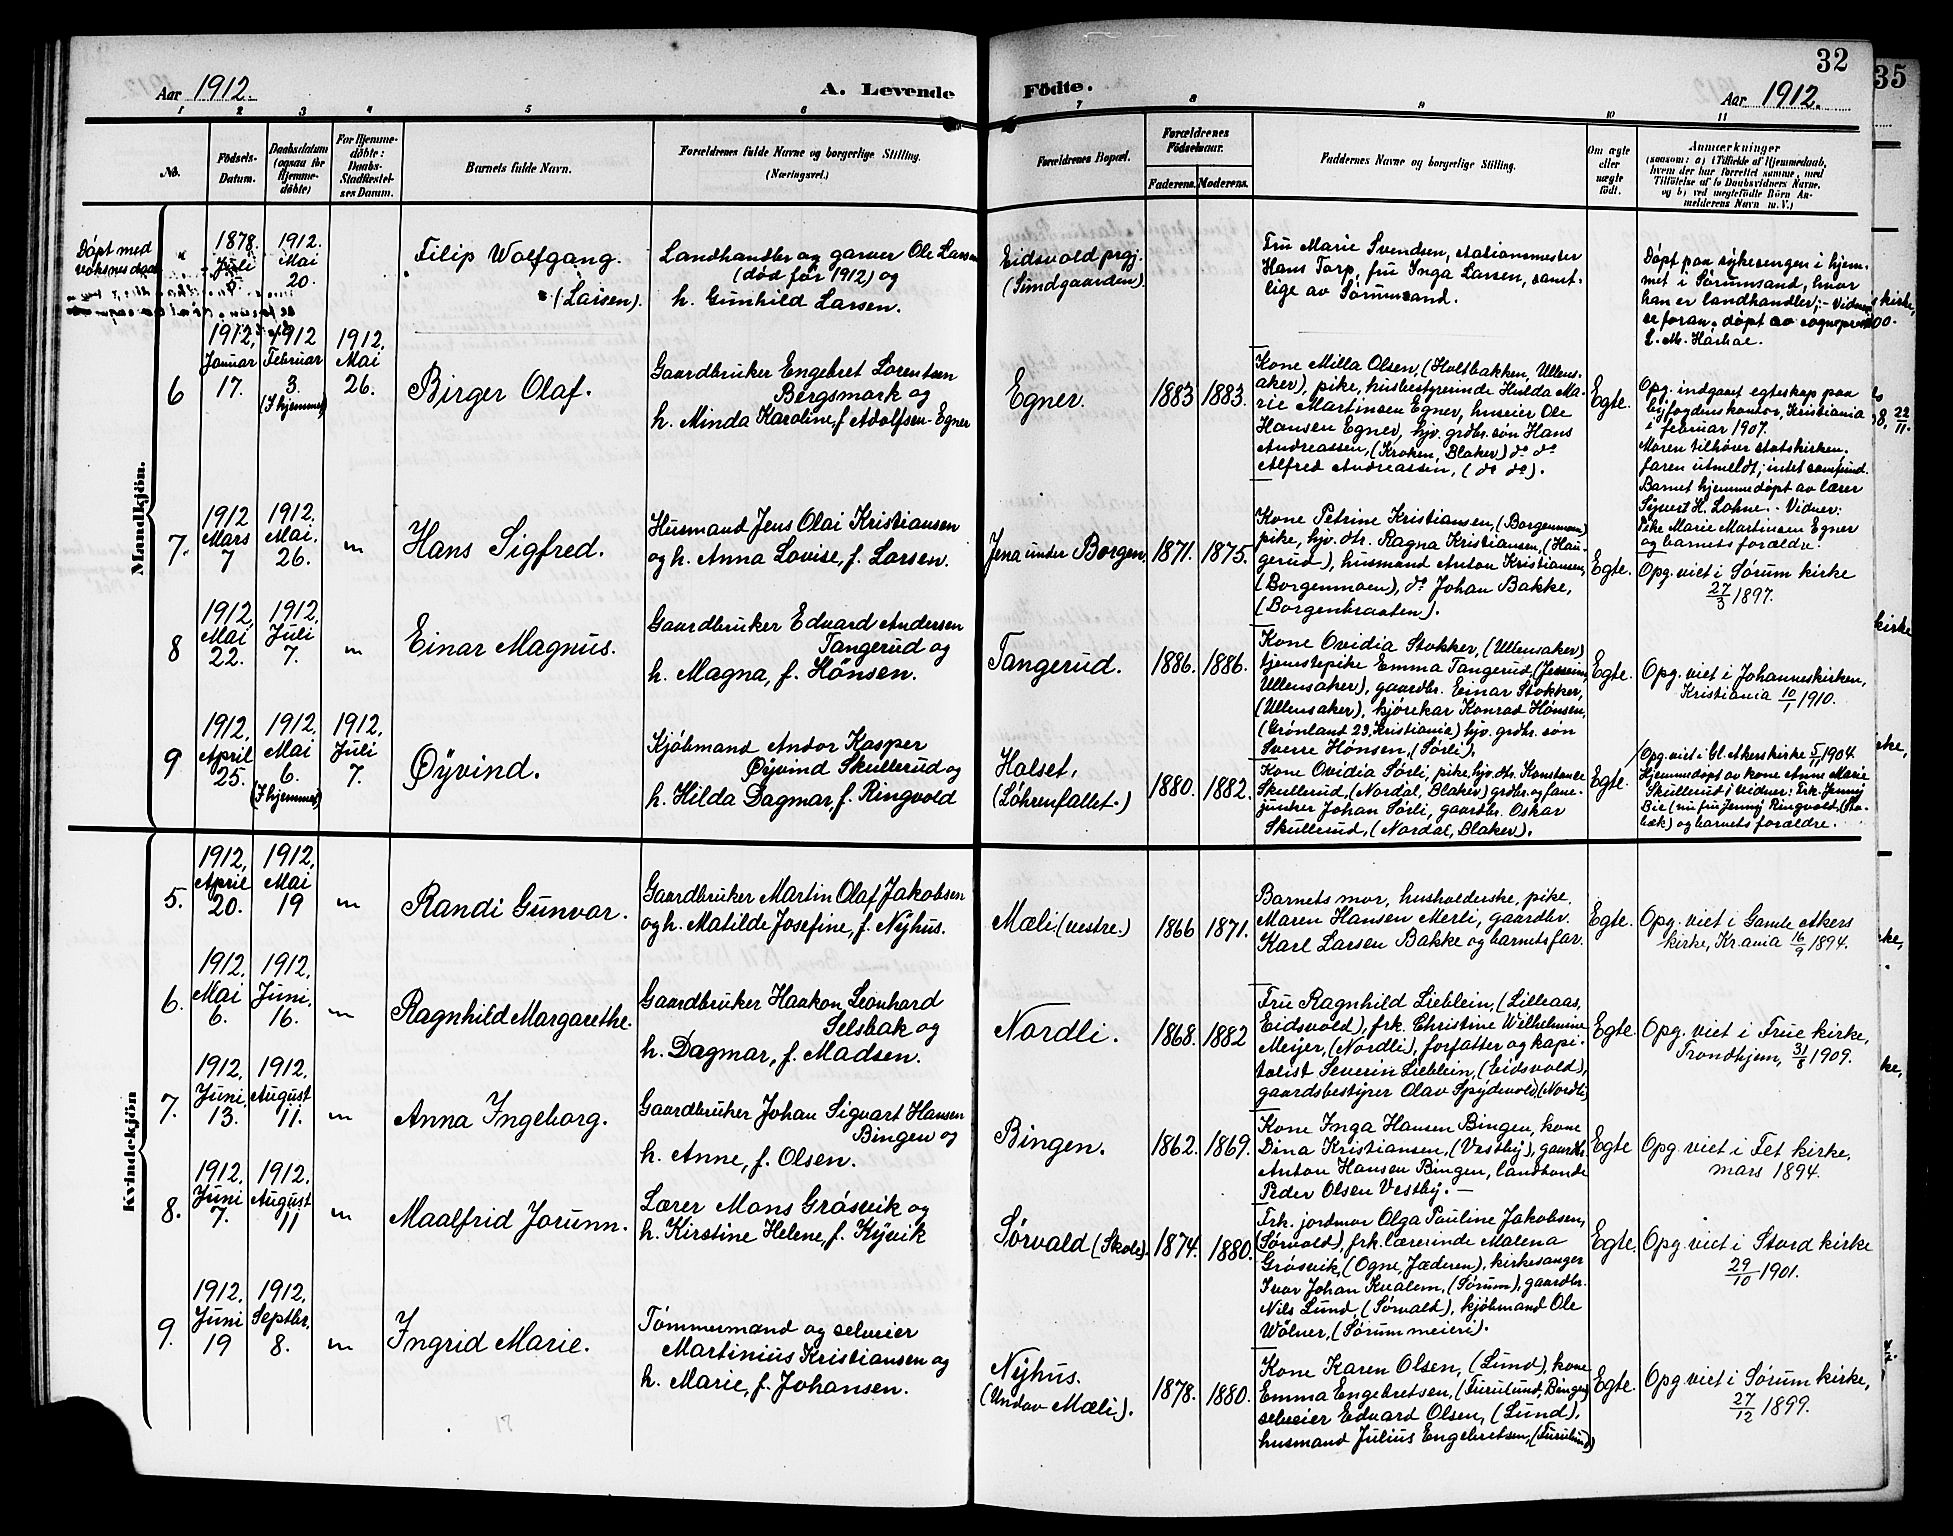 32
35
Aar 1912.
A. Levende
Födte.
Aar 1912.
1 2 3 4 5 6 7 8 9 10 11
No.
Födsels-
Datum.
Daabsdatum
(ogsaa for
Hjemme-
döbte)
For Hjemme-
döbte:
Daabs-
Stadfæstel-
ses Datum.
Barnets fulde Navn.
Forældrenes fulde Navne og borgerlige Stilling.
(Næringsvei.)
Forældrenes Bopæl.
Forældrenes
Födselsaar.
Faderens. Moderens.
Faddernes Navne og borgerlige Stilling.
Om ægte
eller
uægte
födt.
Anmærkninger
(saasom: a) i Tilfælde af Hjemmedaab,
hvem der har forrettet samme, med
Tilföielse af to Daabsvidners Navne,
og b) ved uegtefödte Börn An-
melderens Navn m. V.)
Mandkjön.
Døpt med
voksnes daab
"
1878.
Juli
1912.
Mai
20.
Filip Wolfgang.
(Larsen).
Landhandler og garver Ole Larsen
(død før 1912) og
h. Gunhild Larsen.
Eidsvold prgj.
(Sundgaarden)
Fru Marie Svendsen, stationsmester
Hans Torp, fru Inga Larsen, samt-
lige av Sørumsand.
Døpt paa sykesengen i hjem-
met i Sørumsand, hvor
han er landhandler; - Vidner
se foran. døpt av sogneprest
6
1912,
Januar
17.
1912
Februar
3.
(I hjemmet)
1912.
Mai
26.
Birger Olaf.
Gaardbruker Engebret Lorentsen
Bergsmark og
h. Minda Karoline, f. Adolfsen-Egner
Egner.
1883
1883.
Kone Milla Olsen, (Holtbakken, Ullens-
aker), pike, husbestyrerinde Hulda Ma-
rie Martinsen Egner, huseier Ole
Hansen Egner, hjv. grdbr. søn Hans
Andreassen, (Kroken, Blaker) do do
Alfred Andreassen, (do do).
Egte.
Opg. indgaat egteskap paa
byfogdens kontor, Kristiania
i februar 1907.
Moren tilhører statskirken,
faren utmeldt; intet samfund.
Barnet hjemmedøpt av lærer
Sigvert H. Lohne. - Vidner:
Pike Marie Martinsen Egner
og barnets forældre.
7.
1912
Mars
7
1912.
Mai.
26.
"
Hans Sigfred.
Husmand Jens Olai Kristiansen
og h. Anna Lovise, f. Larsen.
Jena under Borgen.
1871.
1875.
Kone Petrine Kristiansen, (Borgenmoen)
pike, hjv. dtr. Ragna Kristiansen, (Hau-
gerud), husmand Anton Kristiansen,
(Borgenmoen), do Johan Bakke,
(Borgenbraaten).
Egte.
Opg. viet i Sørum kirke
27/3 1897.
8
1912,
Mai
22.
1912.
Juli
7.
"
Einar Magnus.
Gaardbruker Edvard Andersen
Tangerud og
h. Magna, f. Hønsen.
Tangerud.
1886.
1886.
Kone Ovidia Stokker, (Ullensaker)
tjenestepike Emma Tangerud, (Jessheim,
Ullensaker), gaardbr. Einar Stokker,
(Ullensaker), kjørekar Konrad Hønsen,
(Grønland 23, Kristiania) hjv. grdbr. søn
Sverre Hønsen, (Sørli).
Egte.
Opg. viet i Johanneskirken,
Kristiania 10/1 1910.
9
1912,
April
25.
1912.
Mai
6.
(I hjemmet)
1912.
Juli
7.
Øyvind.
Kjøbmand Andor Kasper
Øyvind Skullerud og
h. Hilda Dagmar, f. Ringvold
Halset,
(Løhrenfallet.)
1880.
1882.
Kone Ovidia Sørli, pike, hjv. dtr. Konstance
Skullerud, (Nordal, Blaker) grdbr. og fane-
junker Johan Sørli, gaardbr. Oskar
Skullerud, (Nordal, Blaker).
Egte.
Opg. viet i Gl. Akers kirke 5/11 1904
Hjemmedøpt av kone Anne Marie
Skullerud; vidner: Frk. Jenny
Bie (nu fru Jenny Ringvold, (Sta-
bæk) og barnets forældre.
Kvindekjön
5.
1912,
April
20.
1912,
Mai
19
"
Randi Gunvor.
Gaardbruker Martin Olaf Jakobsen
og h. Matilde Josefine, f. Nyhus.
Mæli (vestre.)
1866
1871.
Barnets mor, husholderske, pike.
Maren Hansen Merli, gaardbr.
Karl Larsen Bakke og barnets far.
Egte.
Opg. viet i Gamle Akers
kirke, Kr.ania 16/9 1894.
6.
1912.
Mai
6.
1912.
Juni.
16.
"
Ragnhild Margarethe.
Gaardbruker Haakon Leonhard
Selsbak og
h. Dagmar, f. Madsen.
Nordli.
1868.
1882
Fru Ragnhild Lieblein, (Lilleaas,
Eidsvold), frk. Christine Wilhelmine
Meijer, (Nordli), forfatter og kapi-
talist Severin Lieblein, (Eidsvold),
gaardsbestyrer Olav Spydevold, (Nordli)
Egte.
Opg. viet i Frue kirke,
Trondhjem, 31/8 1909.
7.
1912.
Juni.
13.
1912.
August
11.
"
Anna Ingeborg.
Gaardbruker Johan Sigvart Hansen
Bingen og
h. Anne, f. Olsen.
Bingen.
1862.
1869.
Kone Inga Hansen Bingen, kone
Dina Kristiansen, (Vestby), gaardbr.
Anton Hansen Bingen, landbonde
Peder Olsen Vestby. -
Egte
Opg. viet i Fet kirke,
mars 1894.
8.
1912.
Juni
7.
1912.
August
11
"
Maalfrid Jorunn.
Lærer Mons Gråsvik og
h. Kirstine Helene, f. Kyvik
Sørvald (Skole)
1874.
1880.
Frk. jordmor Olga Pauline Jakobsen,
(Sørvald), frk. lærerinde Malena
Gråsvik, (Ogne, Jæderen), kirkesanger
Ivar Johan Kvalem, (Sørum), gaardbr.
Nils Lund, (Sørvald), kjøbmand Ole
Wølner, (Sørum meieri).
Egte.
Opg. viet i Stord kirke
29/10 1901.
9.
1912.
Juni
19
1912.
Septbr.
8.
"
Ingrid Marie.
Tømmermand og selveier
Martinius Kristiansen og
h. Marie, f. Johansen.
Nyhus.
(Undav Mæli).
1878.
1880.
Kone Karen Olsen, (Lund), kone
Emma Engebretsen, (Furulund, Bingen)
selveier Edvard Olsen, (Lund),
husmand Julius Engebretsen, (Furulund)
Egte.
Opg. viet i Sørum kirke,
27/12 1899.